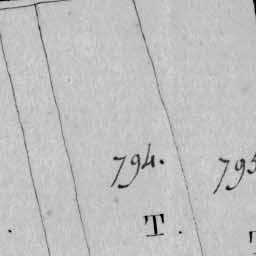 794. 795
T. T